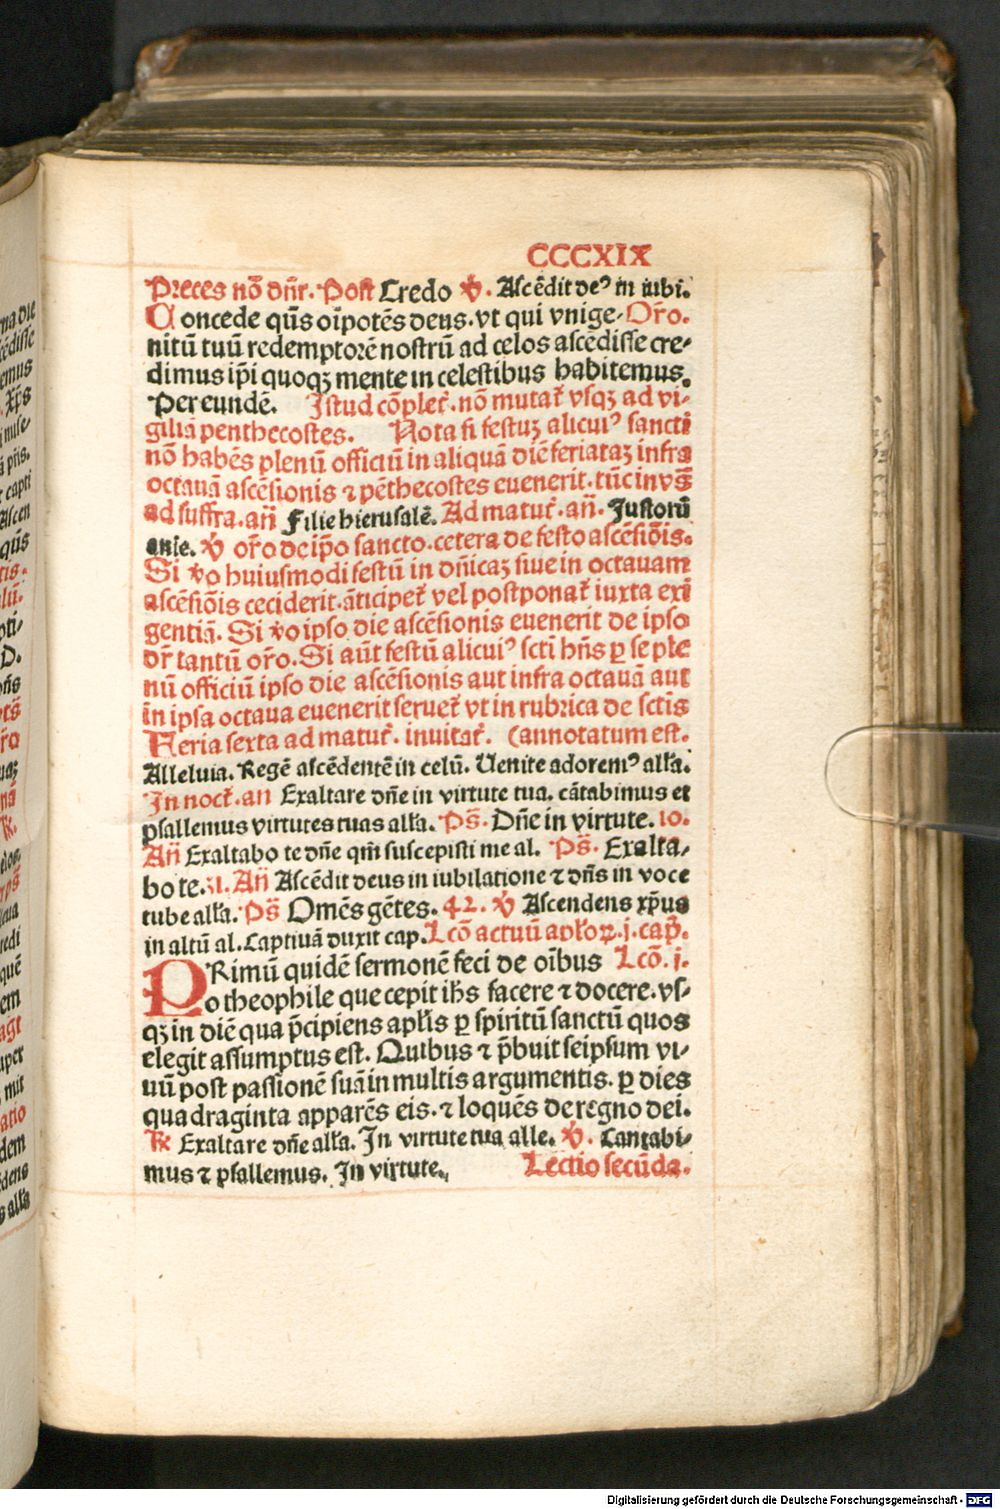 CCCXIX
Preces nō dn̄r. Post Credo v̄. Ascēdit de⁹ in iubi.
Concede qu̅s oīpotēs deus. vt qui vnige- Or̄o.
nitū tuū redemptorē nostrū ad celos ascēdisse cre-
dimus ip̄i quoqꝫ mente in celestibus habitemus.
Per eundē. Istud cōplet̄. nō mutat̄ vsqꝫ ad vi-
giliā penthecostes. Nota si festuꝫ alicui⁹ sancti
nō habēs plenū officiū in aliquā diē feriataꝫ infra
octauā ascēsionis ⁊ pēthecostes euenerit. tūc in vs̄
ad suffra. an̄ Filie hierusalē. Ad matut̄. an̄. Justorū
anīe. v̄ or̄o de ip̄o sancto. cetera de festo ascēsiōis.
Si v̄o huiusmodi festū in dn̄icaꝫ siue in octauam
ascēsiōis ceciderit. āticipet̄ vel postponat̄ iuxta exi
gentiā. Si v̄o ipso die ascēsionis euenerit de ipso
dr̄ tantū or̄o. Si aūt festū alicui⁹ scti hn̄s ꝑ se ple
nū officiū ipso die ascēsionis aut infra octauā aut
in ipsa octaua euenerit seruet̄ vt in rubrica de sctis
Feria sexta ad matut̄. inuitat̄. (annotatum est.
Alleluia. Regē ascēdentē in celū. Uenite adorem⁹ all̄a.
In noct̄. an̄ Exaltare dn̄e in virtute tua. cātabimus et
psallemus virtutes tuas all̄a. Ps̄. Dn̄e in virtute. 10.
An̄ Exaltabo te dn̄e qm̄ suscepisti me al. Ps̄. Exalta-
bo te. 31. An̄ Ascēdit deus in iubilatione ⁊ dn̄s in voce
tube all̄a. Ps̄ Omēs gētes. 42. v̄ Ascendens xp̄us
in altū al. Captiuā duxit cap. Lcō actuū apl̄oꝝ. j. cap̄.
PRimū quidē sermonē feci de oībus Lcō. j.
o theophile que cepit ih̄s facere ⁊ docere. vs-
qꝫ in diē qua p̄cipiens apl̄is ꝑ spiritū sanctū quos
elegit assumptus est. Quibus ⁊ p̄buit seipsum vi-
uū post passionē suā in multis argumentis. ꝑ dies
quadraginta apparēs eis. ⁊ loquēs de regno dei.
℟ Exaltare dn̄e all̄a. In virtute tua alle. v̄. Cantabi-
mus ⁊ psallemus. In virtute. Lectio secūda.
Digitalisierung gefördert durch die Deutsche Forschungsgemeinschaft - DFG